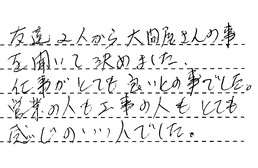 友達2人から大間産さんの事
を聞いて決めました。
仕事がとても良いとの事でした。
営業の人も工事の人もとても
感じのいい人でした。